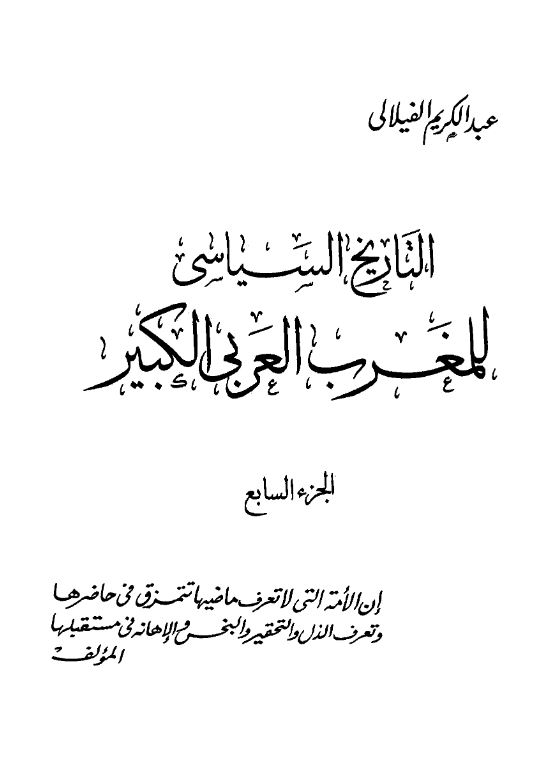 عبد الكريم الفيلالى
التاريخ السياسى
للمغرب العربى الكبير
الجزء السابع
إن الأمة التى لا تعرف ماضيها تتمزق فى حاضرها
وتعرف الذل والتحقير والبخس والإهانه فى مستقبلها
المؤلف